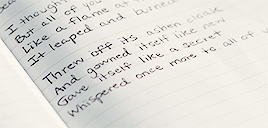 I thought
But all of you
Like a flame at
It leaped and burned
Threw off its ashen cloak
And gowned itself like new
Gave itself like a secret
Whispered once more to all of